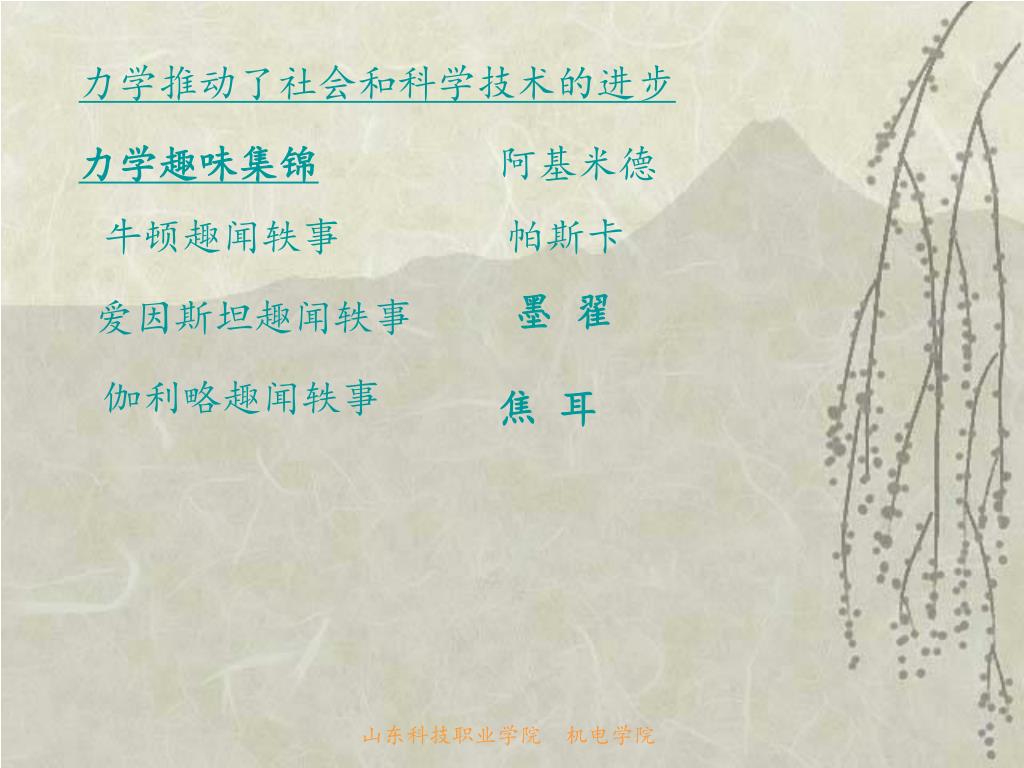 力学推动了社会和科学技术的进步
力学趣味集锦
阿基米德
牛顿趣闻轶事
帕斯卡
爱因斯坦趣闻轶事
墨 翟
伽利略趣闻轶事
焦 耳
山东科技职业学院 机电学院